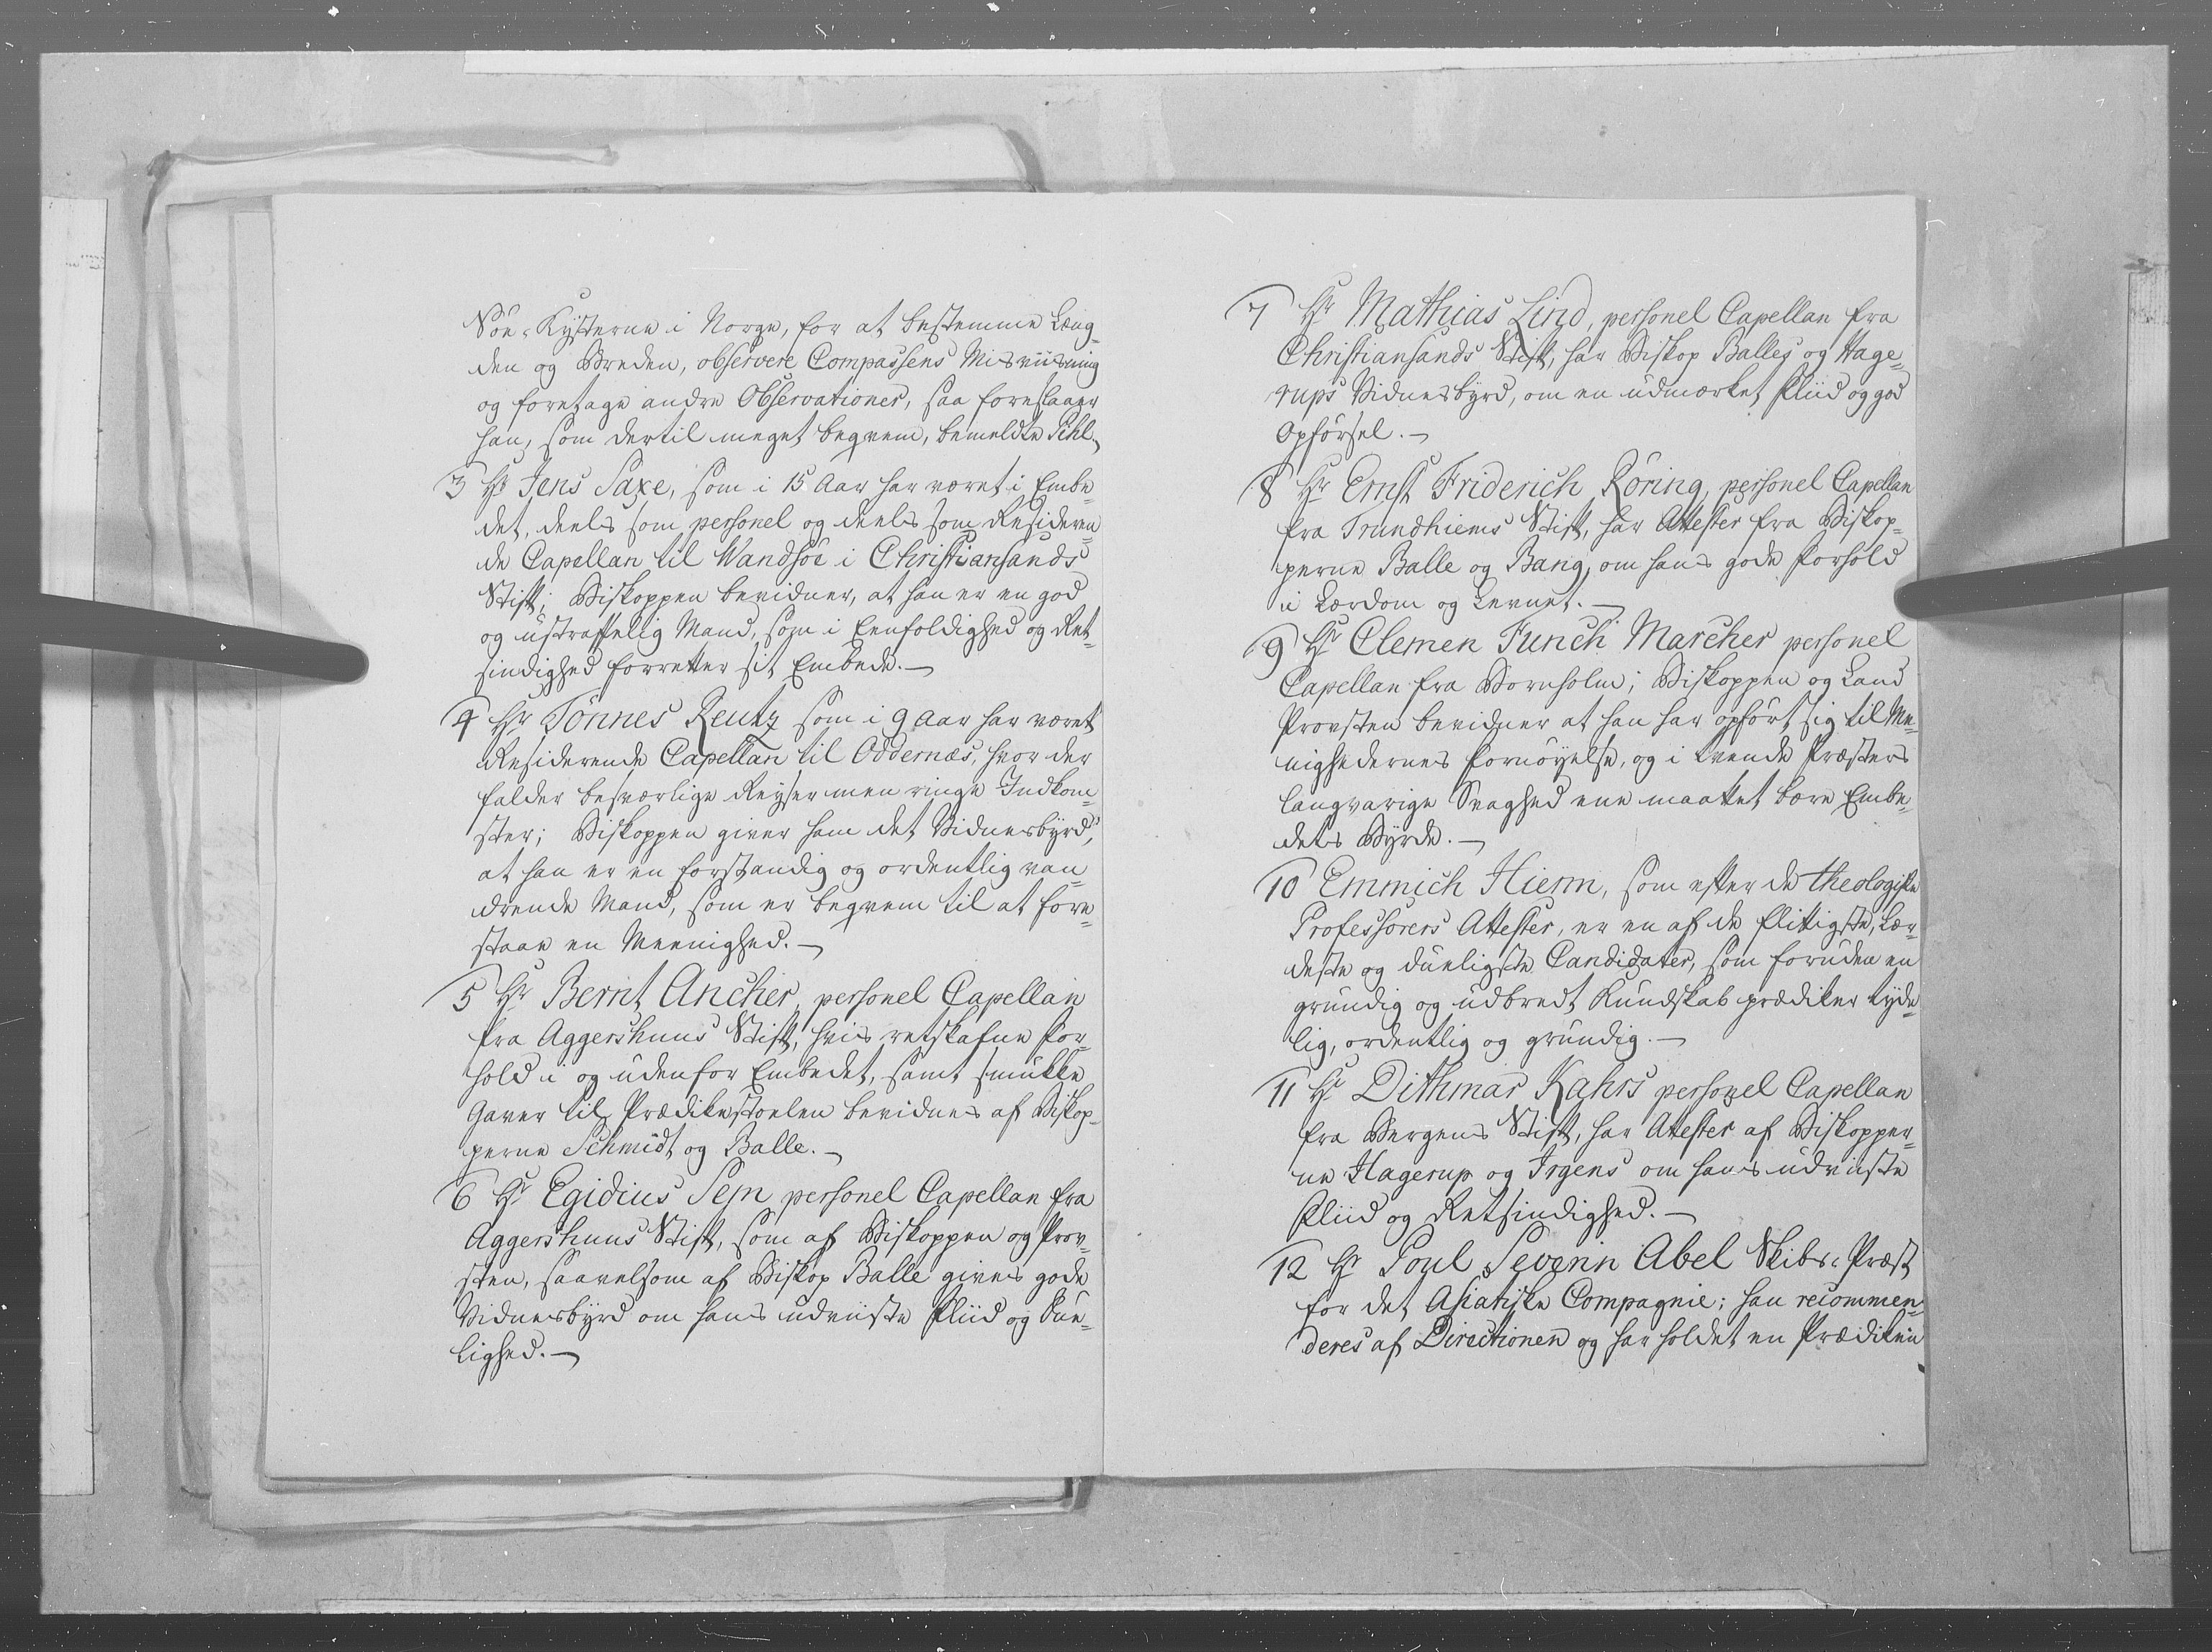 Söe-Kysterne i Norge, for at bestemme Læng-
den og Breden, observere Compassens Misviisning
og foretage andre Observationer, saa foreslaaer
han, som dertil meget beqvem, bemeldte Pihl.
3 Hr Jens Saxe, som i 15 Aar har været i Embe-
det, deels som personel og deels som Resideren-
de Capellan til Wandsöe i Christiansands
Stift; Biskoppen bevidner, at han er en god
og ustraffelig Mand, som i Eenfoldighed og Ret-
sindighed forretter sit Embede.—
4 Hr Tönnes Reutz som i 9 Aar har været
Residerende Capellan til Oddernæs, hvor der
falder besværlige Reyser men ringe Indkom-
ster; Biskoppen giver ham det Vidnesbyrd,
at han er en forstandig og ordentlig van-
drende Mand, som er beqvem til at fore-
staae en Meenighed.—
5 Hr Bernt Ancher, personel Capellan
fra Aggershuus Stift, hvis retskafne For-
hold i og udenfor Embedet, samt smukke
Gaver til Prædikestoelen bevidnes af Biskop-
perne Schmidt og Balle.—
6 Hr Egidius Sem personel Capellan fra
Aggershuus Stift, som af Biskoppen og Prov-
sten, saavelsom af Biskop Balle gives gode
Vidnesbyrd om hans udviiste Fliid og Due-
lighed.—
7 Hr Mathias Lind, personel Capellan fra
Christiansands Stift, har Biskop Balles og Hage-
rups Vidnesbyrd, om en udmærket Fliid og god
Opförsel.—
8 Hr Ernst Friderich Röring, personel Capellan
fra Trundhiems Stift, har Attester fra Biskop-
perne Balle og Bang, om hans gode Forhold
i Lærdom og Levnet.—
9 Hr Clemen Funch Marcher personel
Capellan fra Bornholm; Biskoppen og Land
Provsten bevidner at han har opfört sig til Me-
nighedernes Fornöyelse, og i tvende Præsters
langvarige Svaghed ene maattet bære Embe-
dets Byrde.—
10 Emmich Hierm, som efter de theologiske
Professorers Attester, er en af de flittigste, Lær-
deste og dueligste Candidater, som foruden en
grundig og udbredt Kundskab prædiker tyde-
lig, ordentlig og grundig.—
11 Hr Dithmar Kahrs personel Capellan
fra Bergens Stift, har Attester af Biskopper-
ne Hagerup og Irgens om hans udviiste
Fliid og Retsindighed.—
12 Hr Poul Severin Abel Skibs-Præst
for det Asiatiske Compagnie; han recommen-
deres af Directionen og har holdet en Prædiken